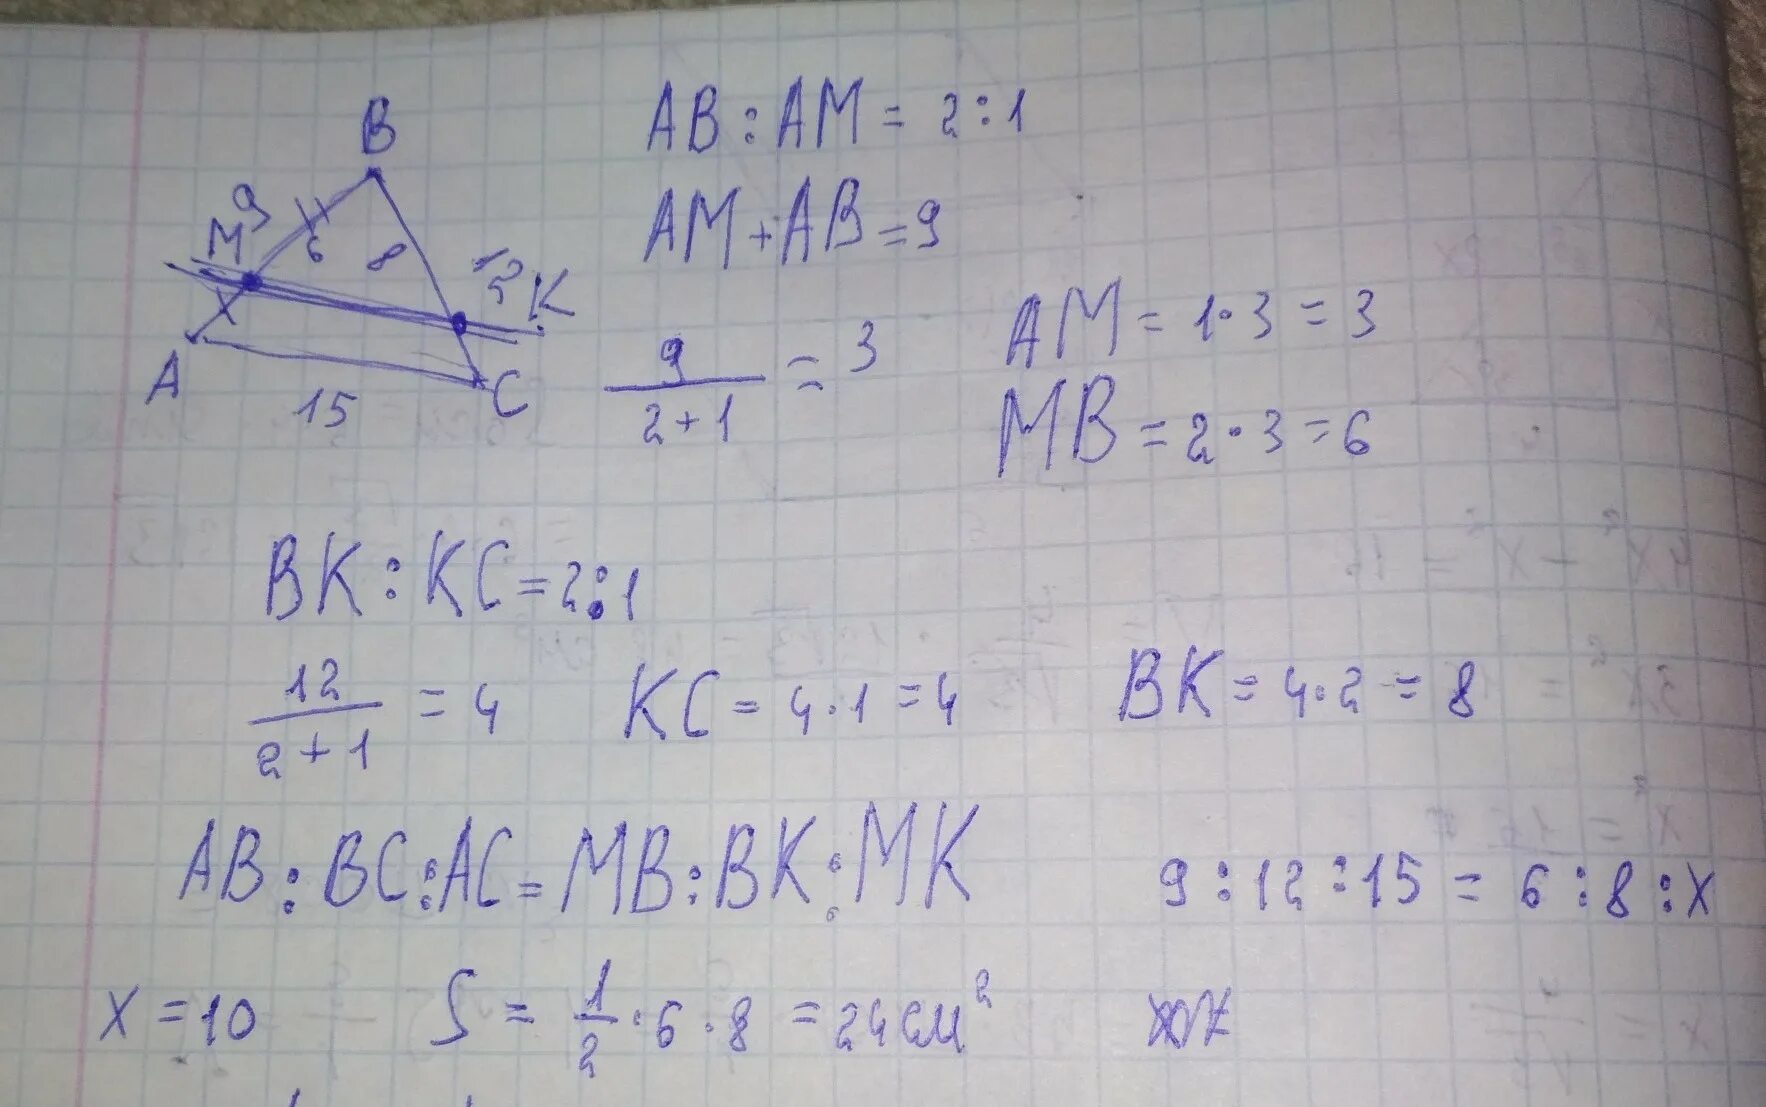 B
AB : AM = 2 : 1
9
M
6
8
12
K
AM + AB = 9
A
15
C
9 / 2+1 = 3
AM = 1·3 = 3
MB = 2·3 = 6
BK : KC = 2:1
12 / 2+1 = 4
KC = 4·1 = 4
BK = 4·2 = 8
AB : BC : AC = MB : BK : MK
9 : 12 : 15 = 6 : 8 : x
x = 10
S = 1/2 · 6 · 8 = 24 см²